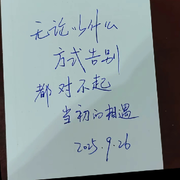 无论以什么
方式告别
都对不起
当初的相遇
2025.9.26